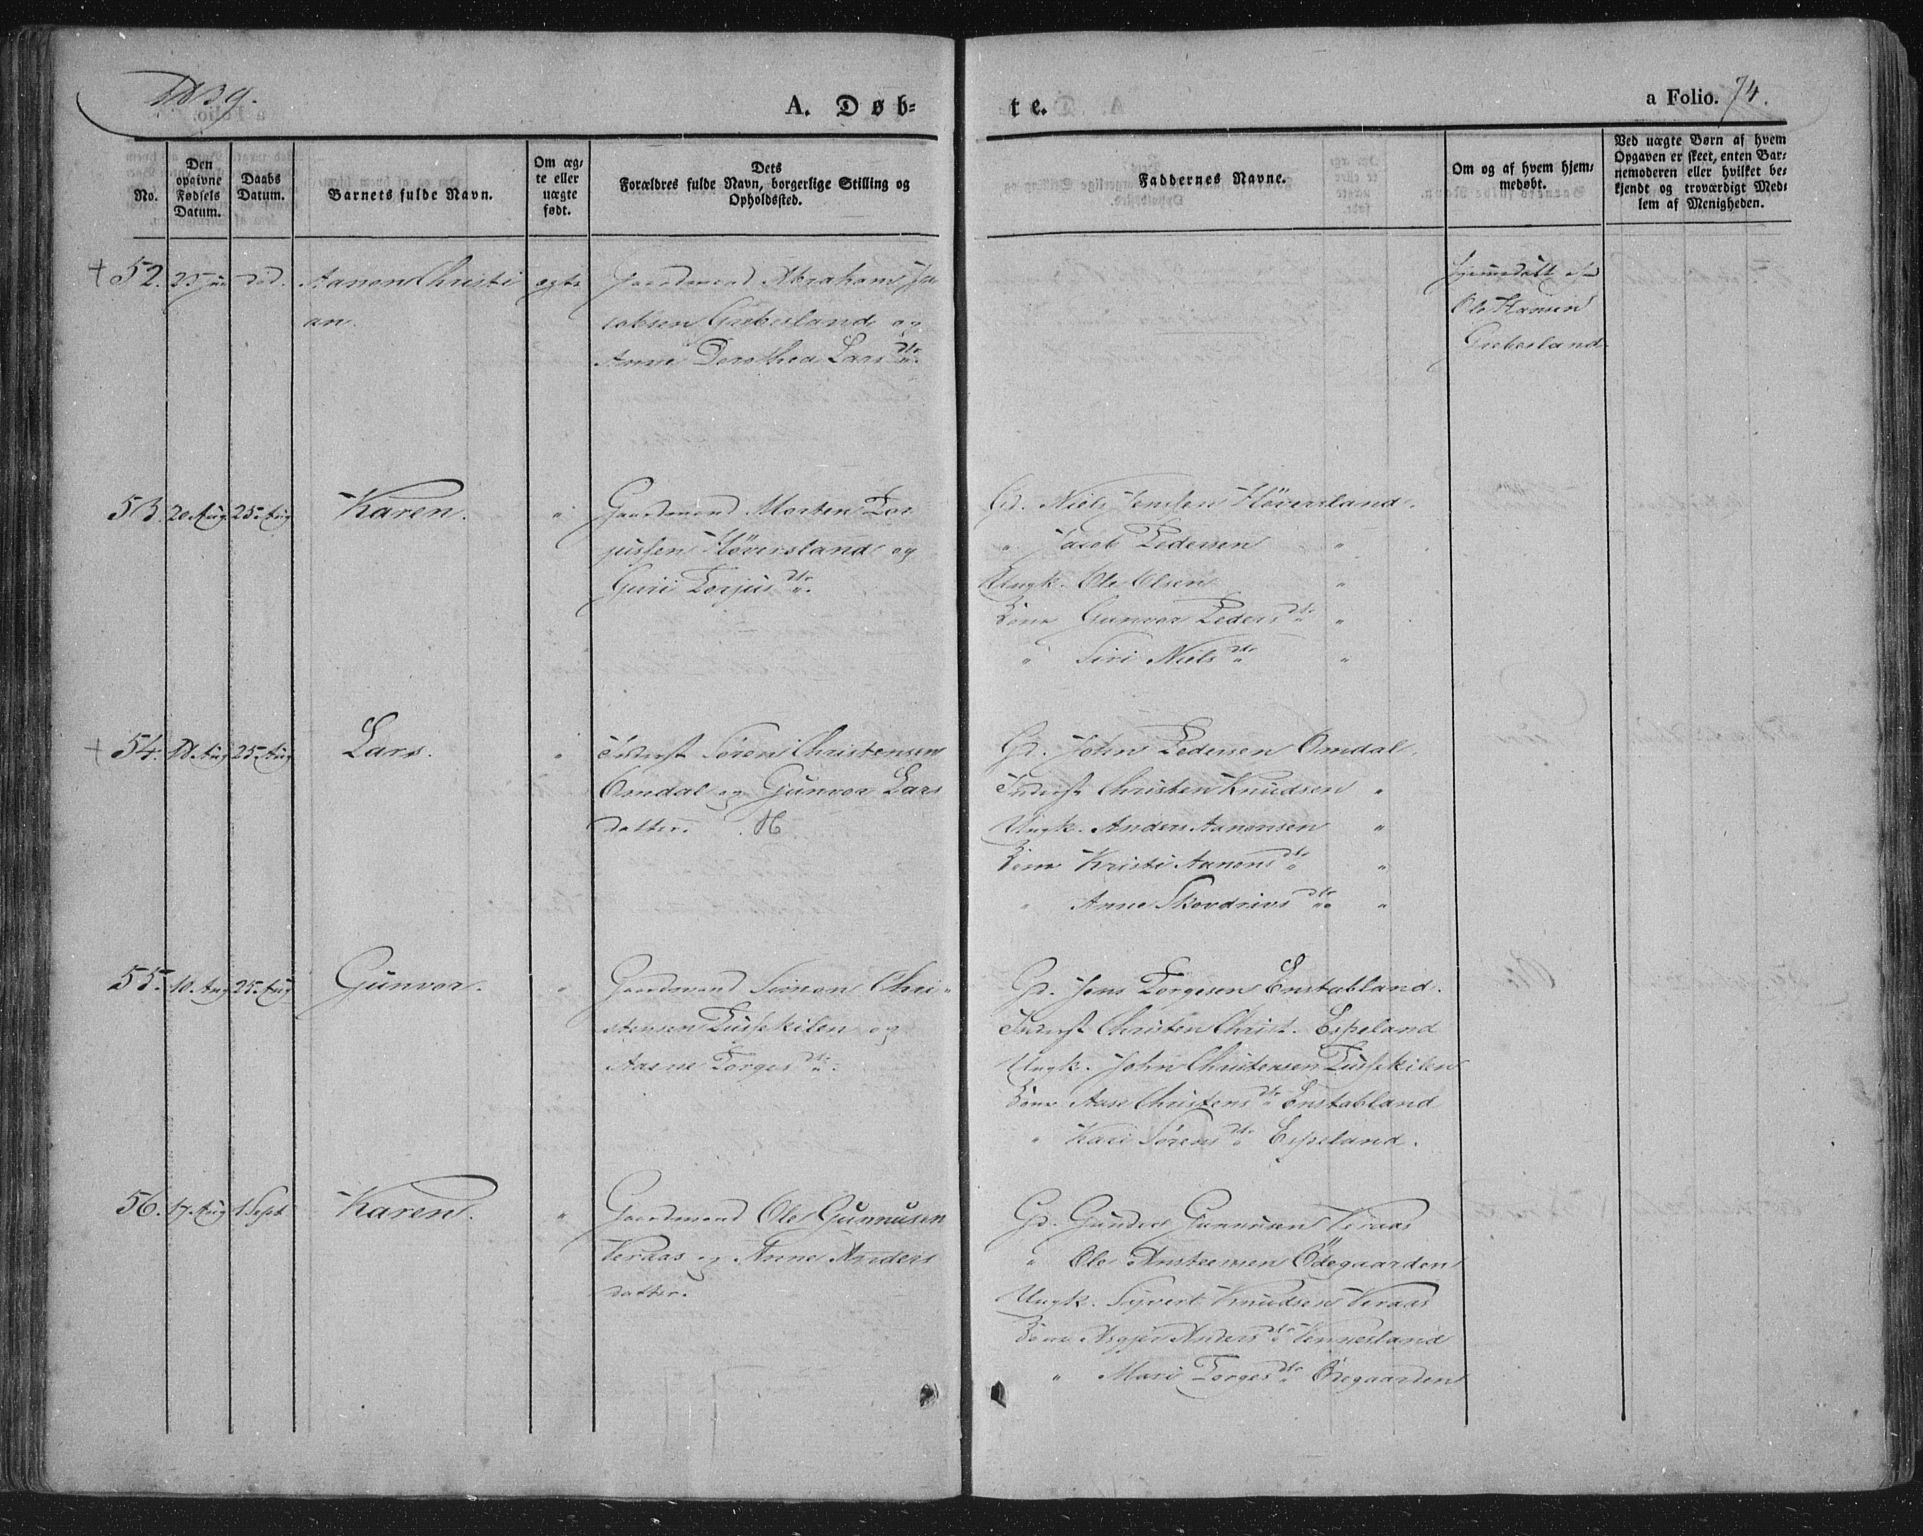 1839.
A. Døb-
te.
a Folio. 74.
No.
Den opgivne Fødsels Datum.
Daabs Datum.
Barnets fulde Navn.
Om æg-te eller uægte født.
Dets Forældres fulde Navn, borgerlige Stilling og Opholdssted.
Faddernes Navne.
Om og af hvem hjem-medøbt.
Ved uægte Børn af hvem Opgaven er skeet, enten Bar-nemoderen eller hvilket be-kjendt og troværdigt Med-lem af Menigheden.
+ 52. 25 do. Aanon Christi ægte Gaardmand Abraham Ja
an. cobsen Grebesland og
Anne Dorothea Larsdtr.
hjemmedøbt af
Ole Hansen
Grebesland
53. 20 Aug 25 Aug Karen. " Gaardmand Morten Tor
jussen Høversland og
Guri Torjusdtr.
Gd. Niels Jensen Høversland.
" Jacob Pedersen "
Ungk. Ole Olsen "
Kone Gunvor Pedersdtr "
" Siri Nielsdtr "
+ 54. 18 Aug 25 Aug Lars. " Inderst Søren Christensen
Omdal og Gunvor Lars
datter.
Gd. John Pedersen Omdal.
Inderst Christen Knudsen "
Ungk. Anders Aanonsen "
Kone Kristi Aanonsdtr "
" Anne Skovdrivsdtr "
55. 10 Aug 25 Aug Gunvor. " Gaardmand Simon Chri-
stensen Tusskilen og
Aasne Torgesdtr.
Gd. Jens Torgesen Enstabland.
Inderst Christen Christ. Espeland
Ungk. John Christensen Tusskilen
Kone Aase Christensdtr Enstabland
" Kari Sørensdtr Espeland.
56. 17 Aug 1 Sept Karen. " Gaardmand Ole Gunnusen
Veraas og Anne Anders
datter.
Gd. Gunder Gunnusen Veraas
" Ole Ansteensen Ødegaarden
Ungk. Syvert Knudsen Veraas
Kone Asgjer Andersdtr Vennesland
" Mari Torgesdtr Ødegaarden